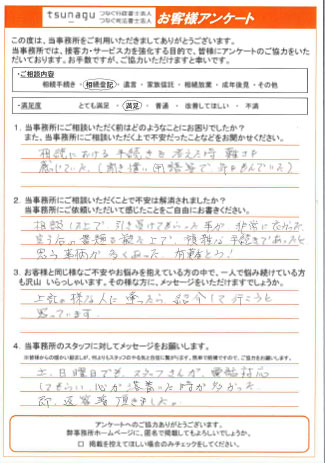 tsunagu つなぐ行政書士法人
つなぐ司法書士法人
お客様アンケート
この度は、当事務所をご利用いただきましてありがとうございます。
当事務所では、接客力・サービス力を強化する目的で、皆様にアンケートのご協力をいただ
いております。お手数ですが、ご協力いただけますと幸いです。
・ご相談内容
相続手続き・相続登記・遺言・家族信託・相続放棄・成年後見・その他
・満足度
とても満足 ・ 満足 ・ 普通 ・ 改善してほしい ・ 不満
1. 当事務所にご相談いただく前はどのようなことにお困りでしたか？
また、当事務所にご相談いただく上で不安だったことなどをお聞かせください。
相続における手続きを考える時 難しさを
感じていた。
2. 当事務所にご相談いただくことで不安は解消されましたか？
当事務所にご依頼いただいて感じたことをご自由にお書きください。
相談の上で 引き受けてもらった事が 非常に
書類を 上で、 手続きであったと
思う 多くあった。 有難とう！
3. お客様と同じ様なご不安やお悩みを抱えている方の中で、一人で悩み続けている方
も沢山 いらっしゃいます。その様な方に、メッセージをいただけますでしょうか。
上記の様な人に 会ったら 紹介して行こうと
思っています。
4. 当事務所のスタッフに対してメッセージをお願いします。
土、日曜日でも、スタッフさんが、電話対応
してもらい、心が落着いた時が多かった。
即、返答を頂きました。
アンケートへのご協力ありがとうございます。
弊事務所ホームページに、匿名で掲載してもよろしいでしょうか。
□ 掲載を控えてほしい場合のみチェックをしてください。